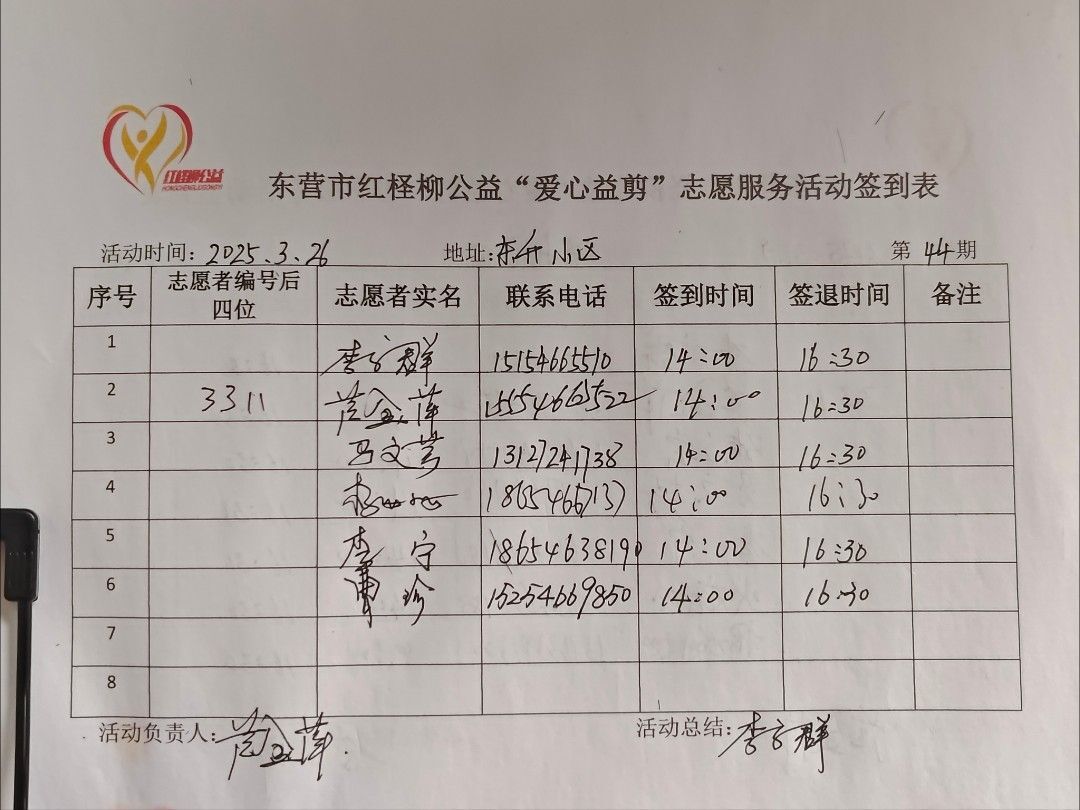 红柽柳公益
HONGCHENGLIUGONGYI
东营市红柽柳公益“爱心益剪”志愿服务活动签到表
活动时间: 2025.3.26 地址: 东升小区 第 44 期
序号 志愿者编号后四位 志愿者实名 联系电话 签到时间 签退时间 备注
1 李 群 15154665510 14:00 16:30
2 3311 萍 15554662522 14:00 16:30
3 马文芳 13127241738 14:00 16:30
4 14:00 16:30
5 李宁 18654638190 14:00 16:30
6 曹珍 15254669850 14:00 16:30
7
8
活动负责人: 萍 活动总结: 李 群